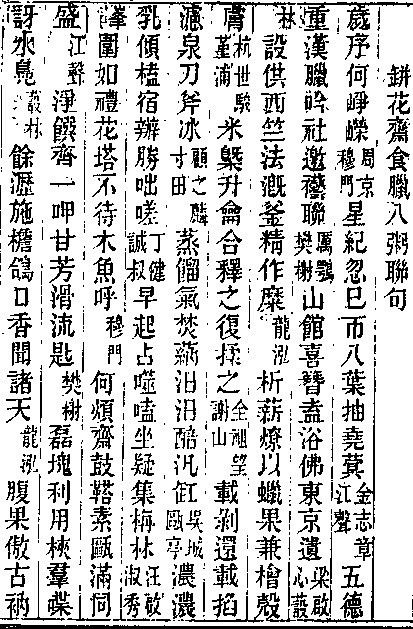 缾花齋食臘八粥聯句
歲序何崢嶸周京穆門星紀忽已帀八葉抽堯蓂金志章江聲五德
重漢臘幹社邀藝聯厲鶚樊榭山館喜簪盍浴佛東京遺梁啟心蔎
林設供西竺法漑釜精作糜龍泓析薪燎以蠟果兼檜殼
膚杭世駿堇浦米槩升龠合釋之復揉之全祖望謝山載剝還載掐
濾泉刀斧冰顧之麟寸田蒸餾氣焚薌汨汨醅汎缸吳城甌亭濃濃
乳傾榼宿辦勝咄嗟丁健誠叔早起占噬嗑坐疑集梅林汪啟淑秀
峯圍如禮花塔不待木魚呼穆門何煩齋鼓鞳素甌滿同
盛江聲淨饌齊一呷甘芳滑流匙樊榭磊塊利用梜羣喋
訝水鳧蔎林餘瀝施檐鴿口香聞諸天龍泓腹果傲古衲